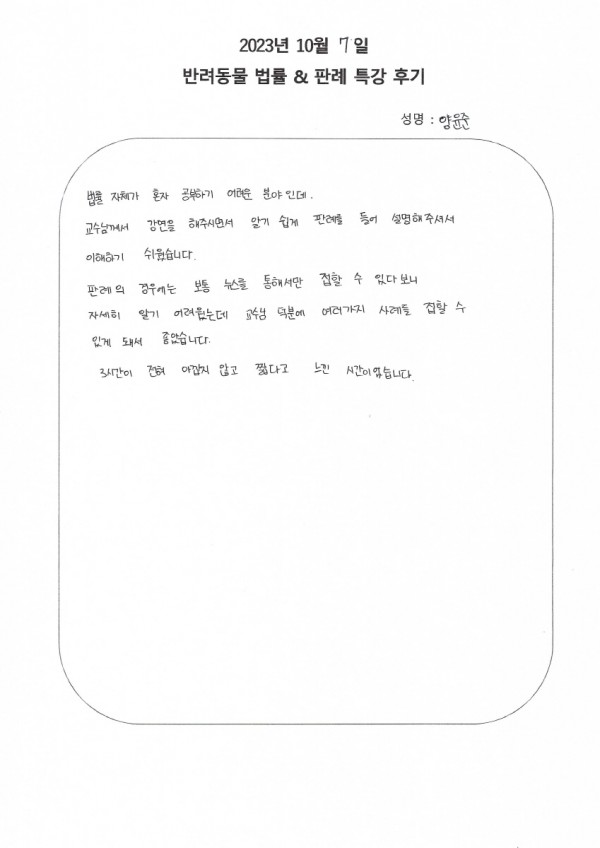 2023년 10월 7일
반려동물 법률 & 판례 특강 후기
성명 : 양윤준
법률 자체가 혼자 공부하기 어려운 분야인데.
교수님께서 강연을 해주시면서 알기 쉽게 판례를 들어 설명해주셔서
이해하기 쉬웠습니다.
판례의 경우에는 보통 뉴스를 통해서만 접할 수 있다보니
자세히 알기 어려웠는데 교수님 덕분에 여러가지 사례들 접할 수
있게 돼서 좋았습니다.
3시간이 전혀 아깝지 않고 짧다고 느낀 시간이였습니다.